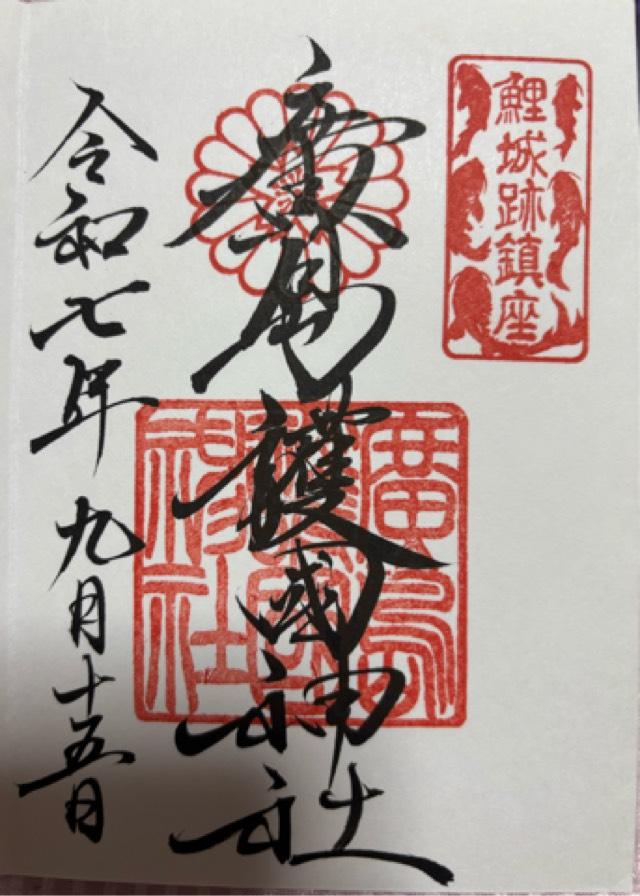 鯉城跡鎮座
廣島護國神社
廣島護國神社
令和七年九月十五日